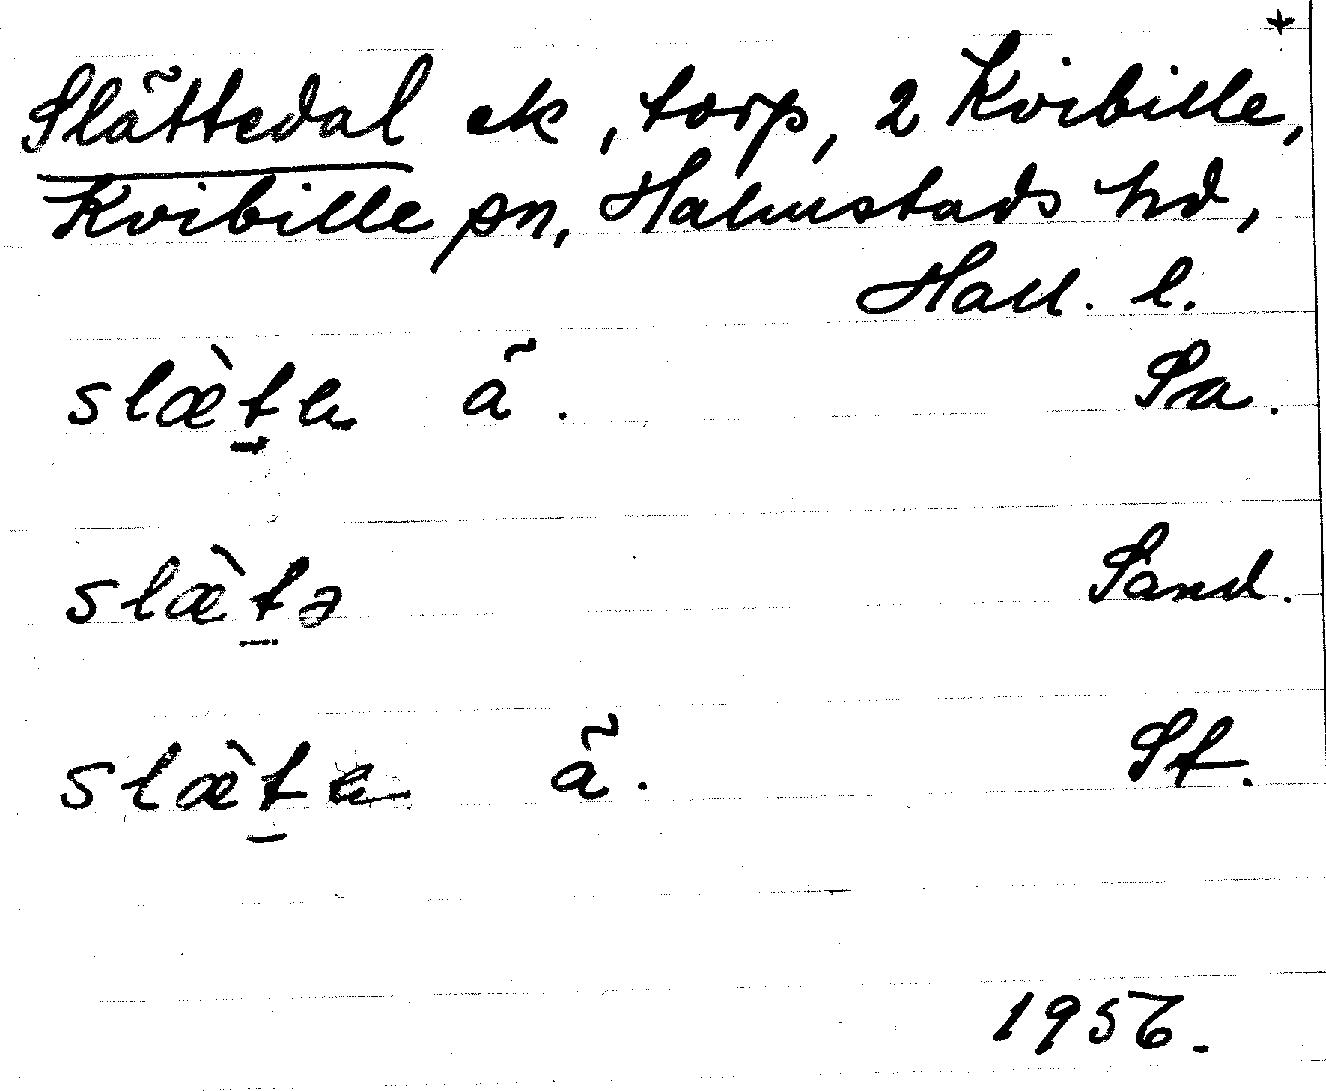 Slättedal ek, torp, 2 Kvibille,
Kvibille sn, Halmstads hd,
Hall. l.
slæ̀te ã. Sa.
slæ̀tə Sand.
slæ̀te ã. St.
1956.